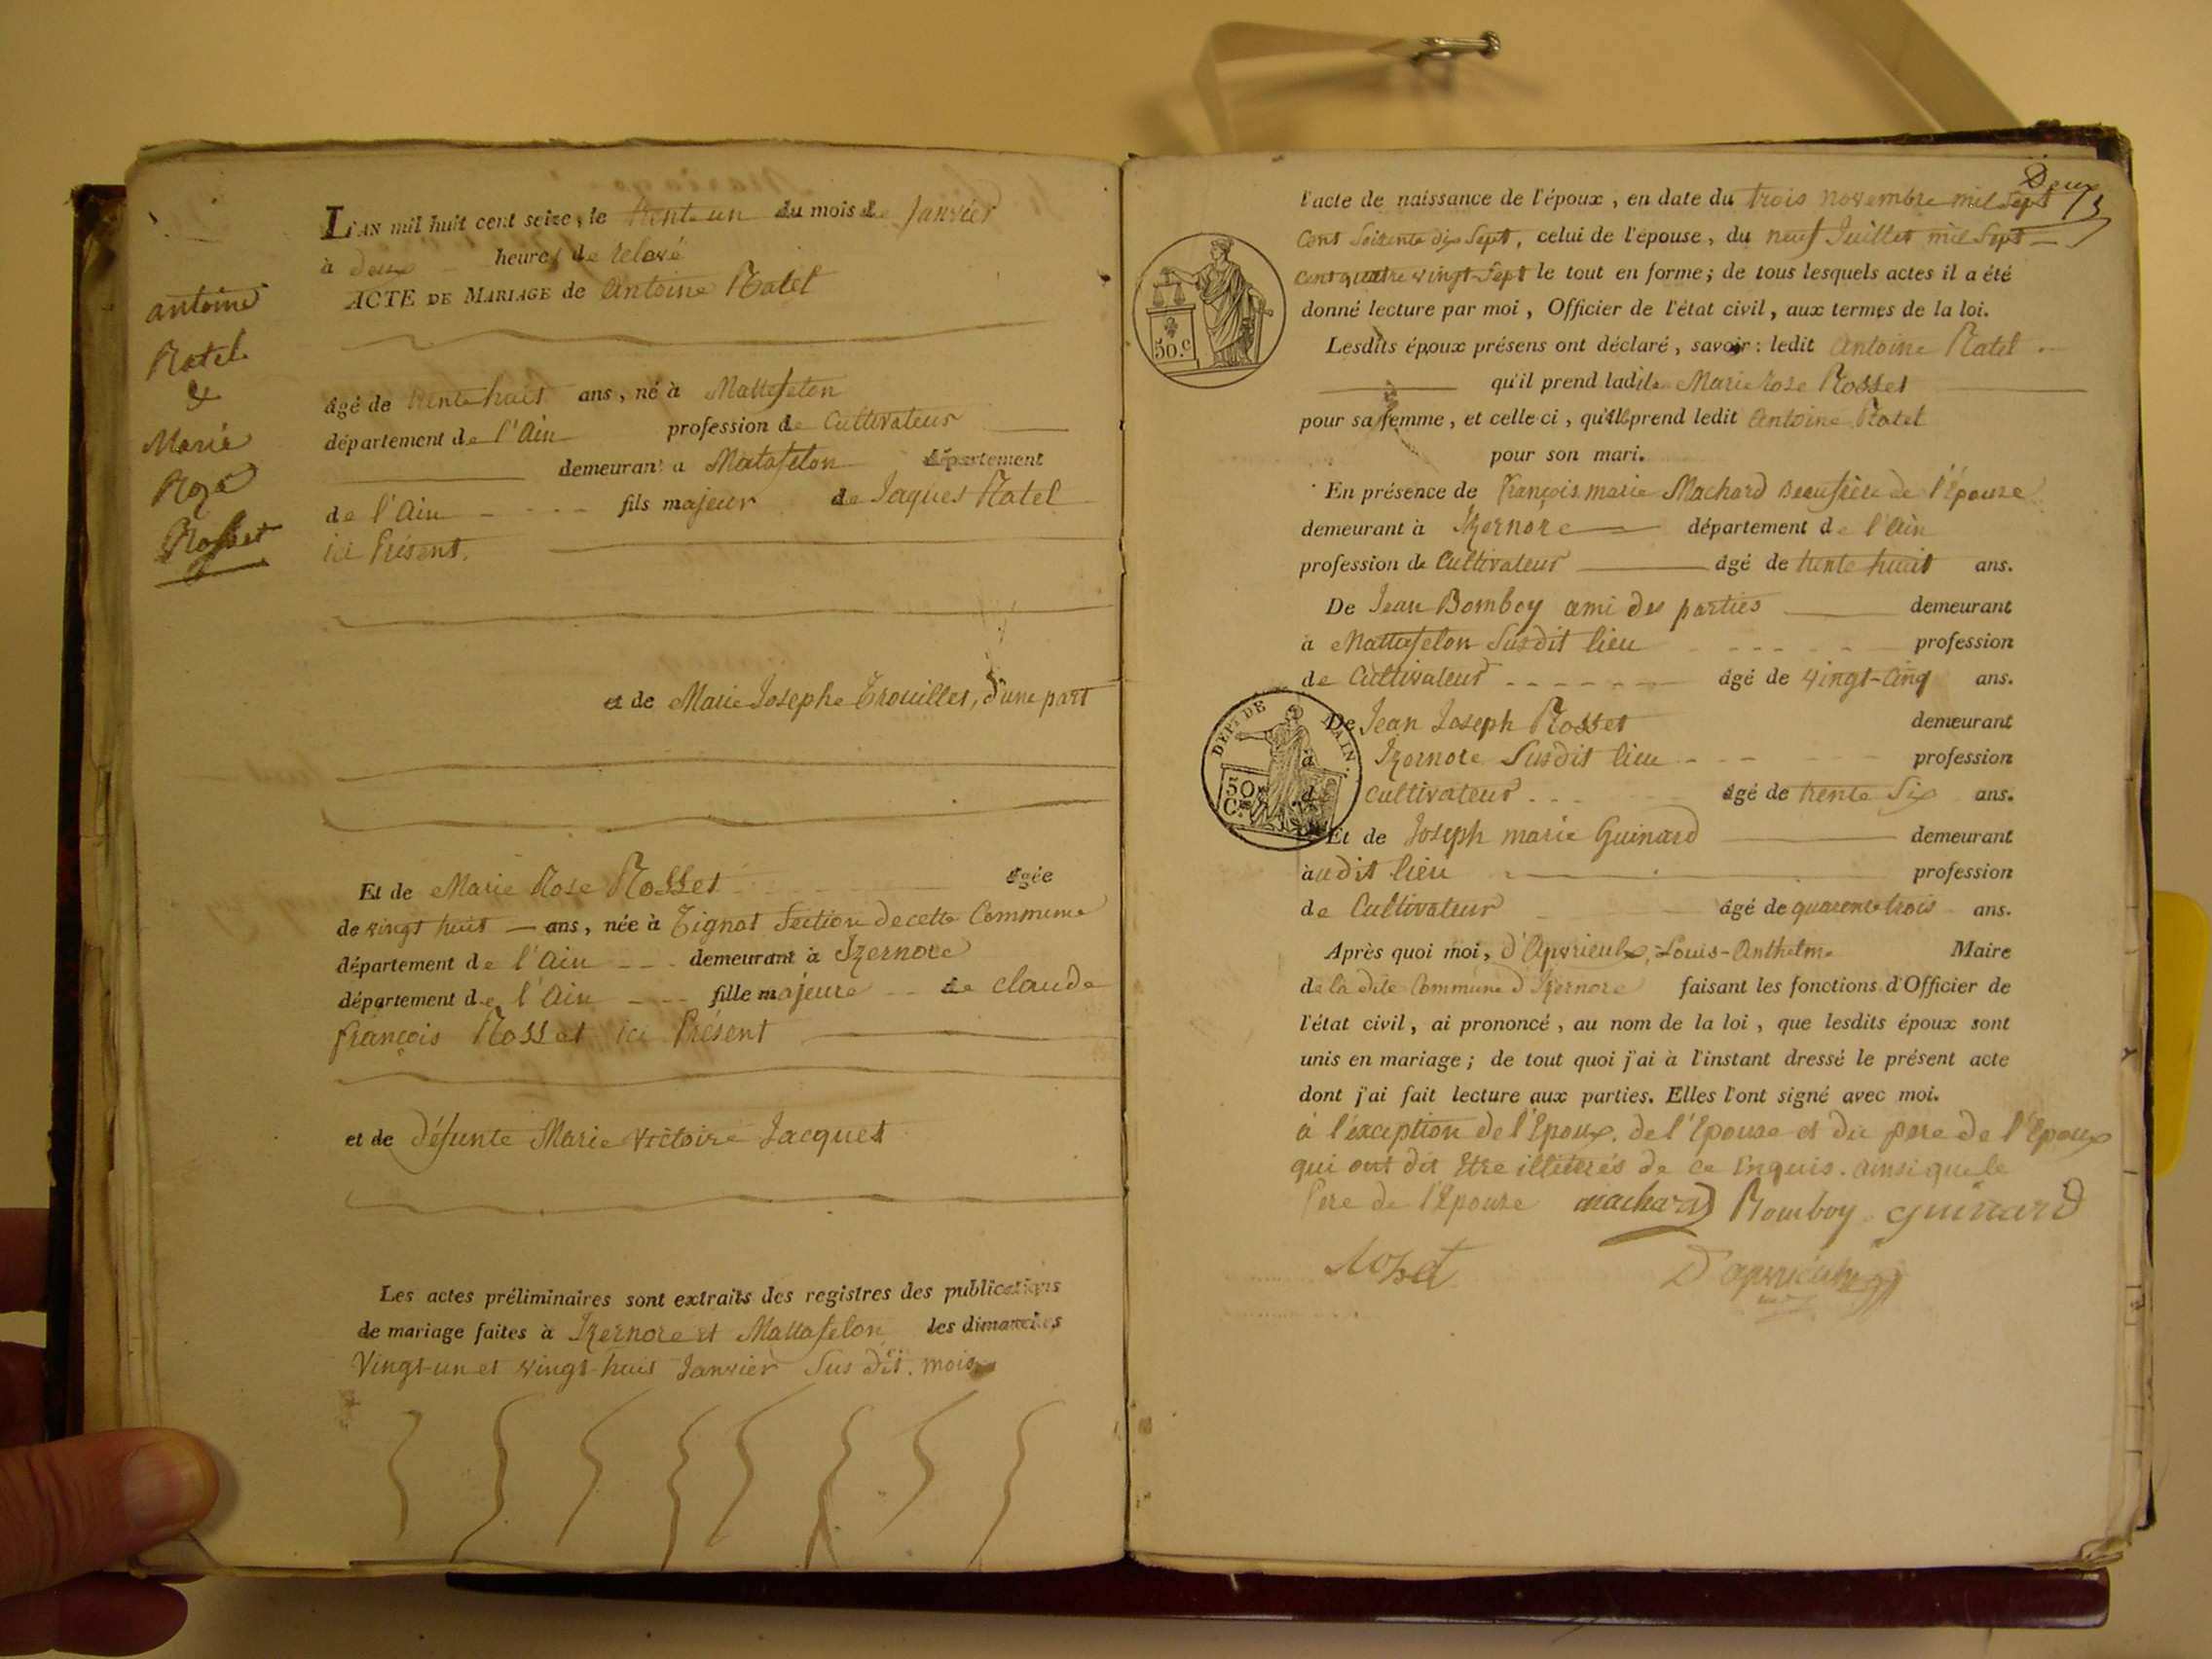 L'AN mil huit cent seize, le trente un du mois de Janvier
à deux heures de relevé
ACTE DE MARIAGE de Antoine Ratel
antoine
Ratel
&
Marie
Roze
Rosset
âgé de trente huit ans, né à Mattafelon
département de l'Ain profession de Cultivateur
demeurant à Matafelon département
de l'Ain fils majeur de Jaques Ratel
ici Présent.
et de Marie Josephe Trouillet, d'une part
Et de Marie Rose Rosset âgée
de vingt huit ans, née à Tignat Section de cette Commune
département de l'Ain demeurant à Izernore
département de l'Ain fille majeure de claude
françois Rosset ici Présent
et de défunte Marie Victoire Jacquet
Les actes préliminaires sont extraits des registres des publications
de mariage faites à Izernore et Mattafelon les dimanches
Vingt-un et vingt-huit Janvier Sus dit. mois
Deux
l'acte de naissance de l'époux, en date du trois novembre mil Sept
Cent Soixente dix Sept, celui de l'épouse, du neuf Juillet mil Sept
cent quatre vingt-Sept le tout en forme; de tous lesquels actes il a été
donné lecture par moi, Officier de l'état civil, aux termes de la loi.
50.c
Lesdits époux présens ont déclaré, savoir: ledit Antoine Ratel
qu'il prend ladite Marie rose Rosset
pour sa femme, et celle ci, qu'elle prend ledit Antoine Ratel
pour son mari.
En présence de françois marie Machard Beaufrère de l'Epouse
demeurant à Izernore département de l'Ain
profession de Cultivateur âgé de trente huit ans.
De Jean Bomboy ami des parties demeurant
à Mattafelon Susdit lieu profession
de Cultivateur âgé de vingt-Cinq ans.
DEPt DE L'AIN.
50 Cs.
De Jean Joseph Rosset demeurant
à Izernore Susdit lieu profession
de cultivateur âgé de trente Six ans.
Et de Joseph marie Guinard demeurant
audit lieu profession
de Cultivateur âgé de quarente trois ans.
Après quoi moi, d'Apvrieulx, Louis-Anthelme Maire
de la dite Commune d'Izernore faisant les fonctions d'Officier de
l'état civil, ai prononcé, au nom de la loi, que lesdits époux sont
unis en mariage; de tout quoi j'ai à l'instant dressé le présent acte
dont j'ai fait lecture aux parties. Elles l'ont signé avec moi.
à l'exception de l'Epoux, de l'Epouse et du pere de l'Epoux
qui ont dit Etre illiterés de ce Enquis. ainsi que le
Pere de l'Epouse machard Bomboy guinard
Rozet D'apvrieulx